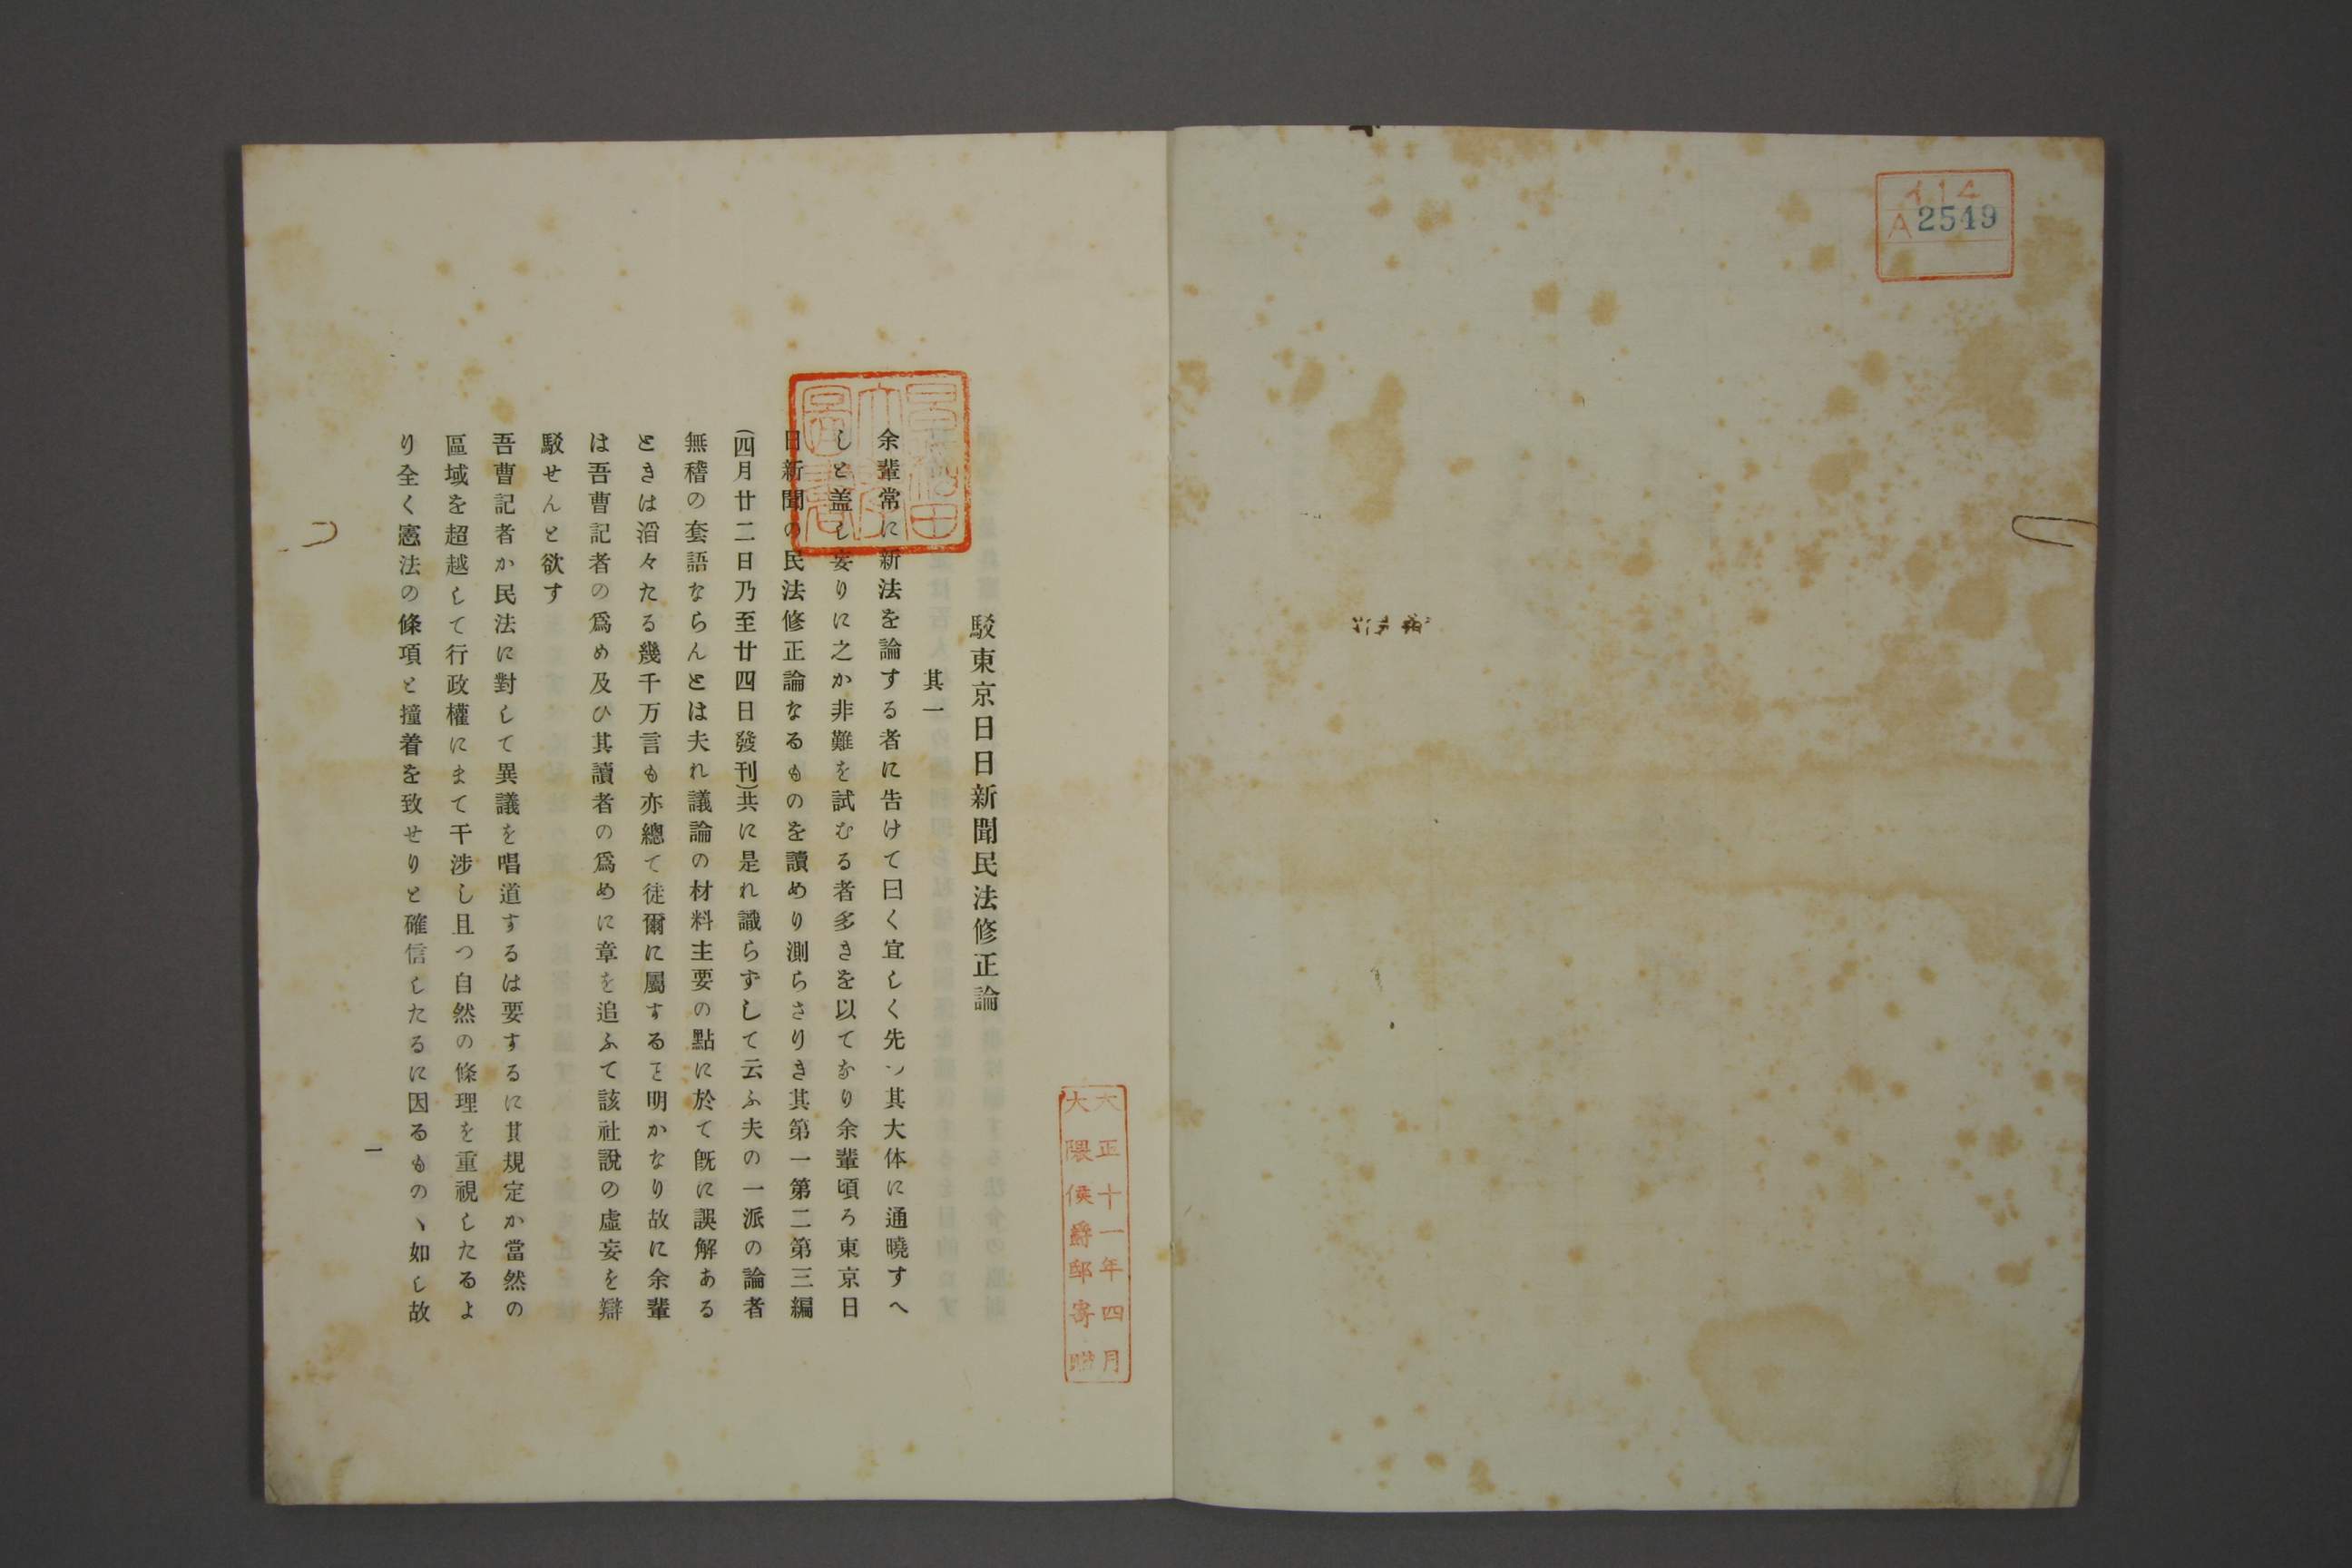 イ14
A 2549
駁東京日日新聞民法修正論
其一
余輩常に新法を論する者に告けて曰く宜しく先つ其大体に通曉すへ
しと盖し妄りに之か非難を試むる者多きを以てなり余輩頃ろ東京日
日新聞の民法修正論なるものを讀めり測らさりき其第一第二第三編
(四月廿二日乃至廿四日發刊)共に是れ識らずして云ふ夫の一派の論者
無稽の套語ならんとは夫れ議論の材料主要の點に於て旣に誤解ある
ときは滔々たる幾千万言も亦總て徒爾に屬するヿ明かなり故に余輩
は吾曹記者の爲め及ひ其讀者の爲めに章を追ふて該社說の虛妄を辯
駁せんと欲す
吾曹記者か民法に對して異議を唱道するは要するに其規定か當然の
區域を超越して行政權にまて干渉し且つ自然の條理を重視したるよ
り全く憲法の條項と撞着を致せりと確信したるに因るものゝ如し故
一
早稲田
大學
圖書
大正十一年四月
大隈侯爵邸寄贈